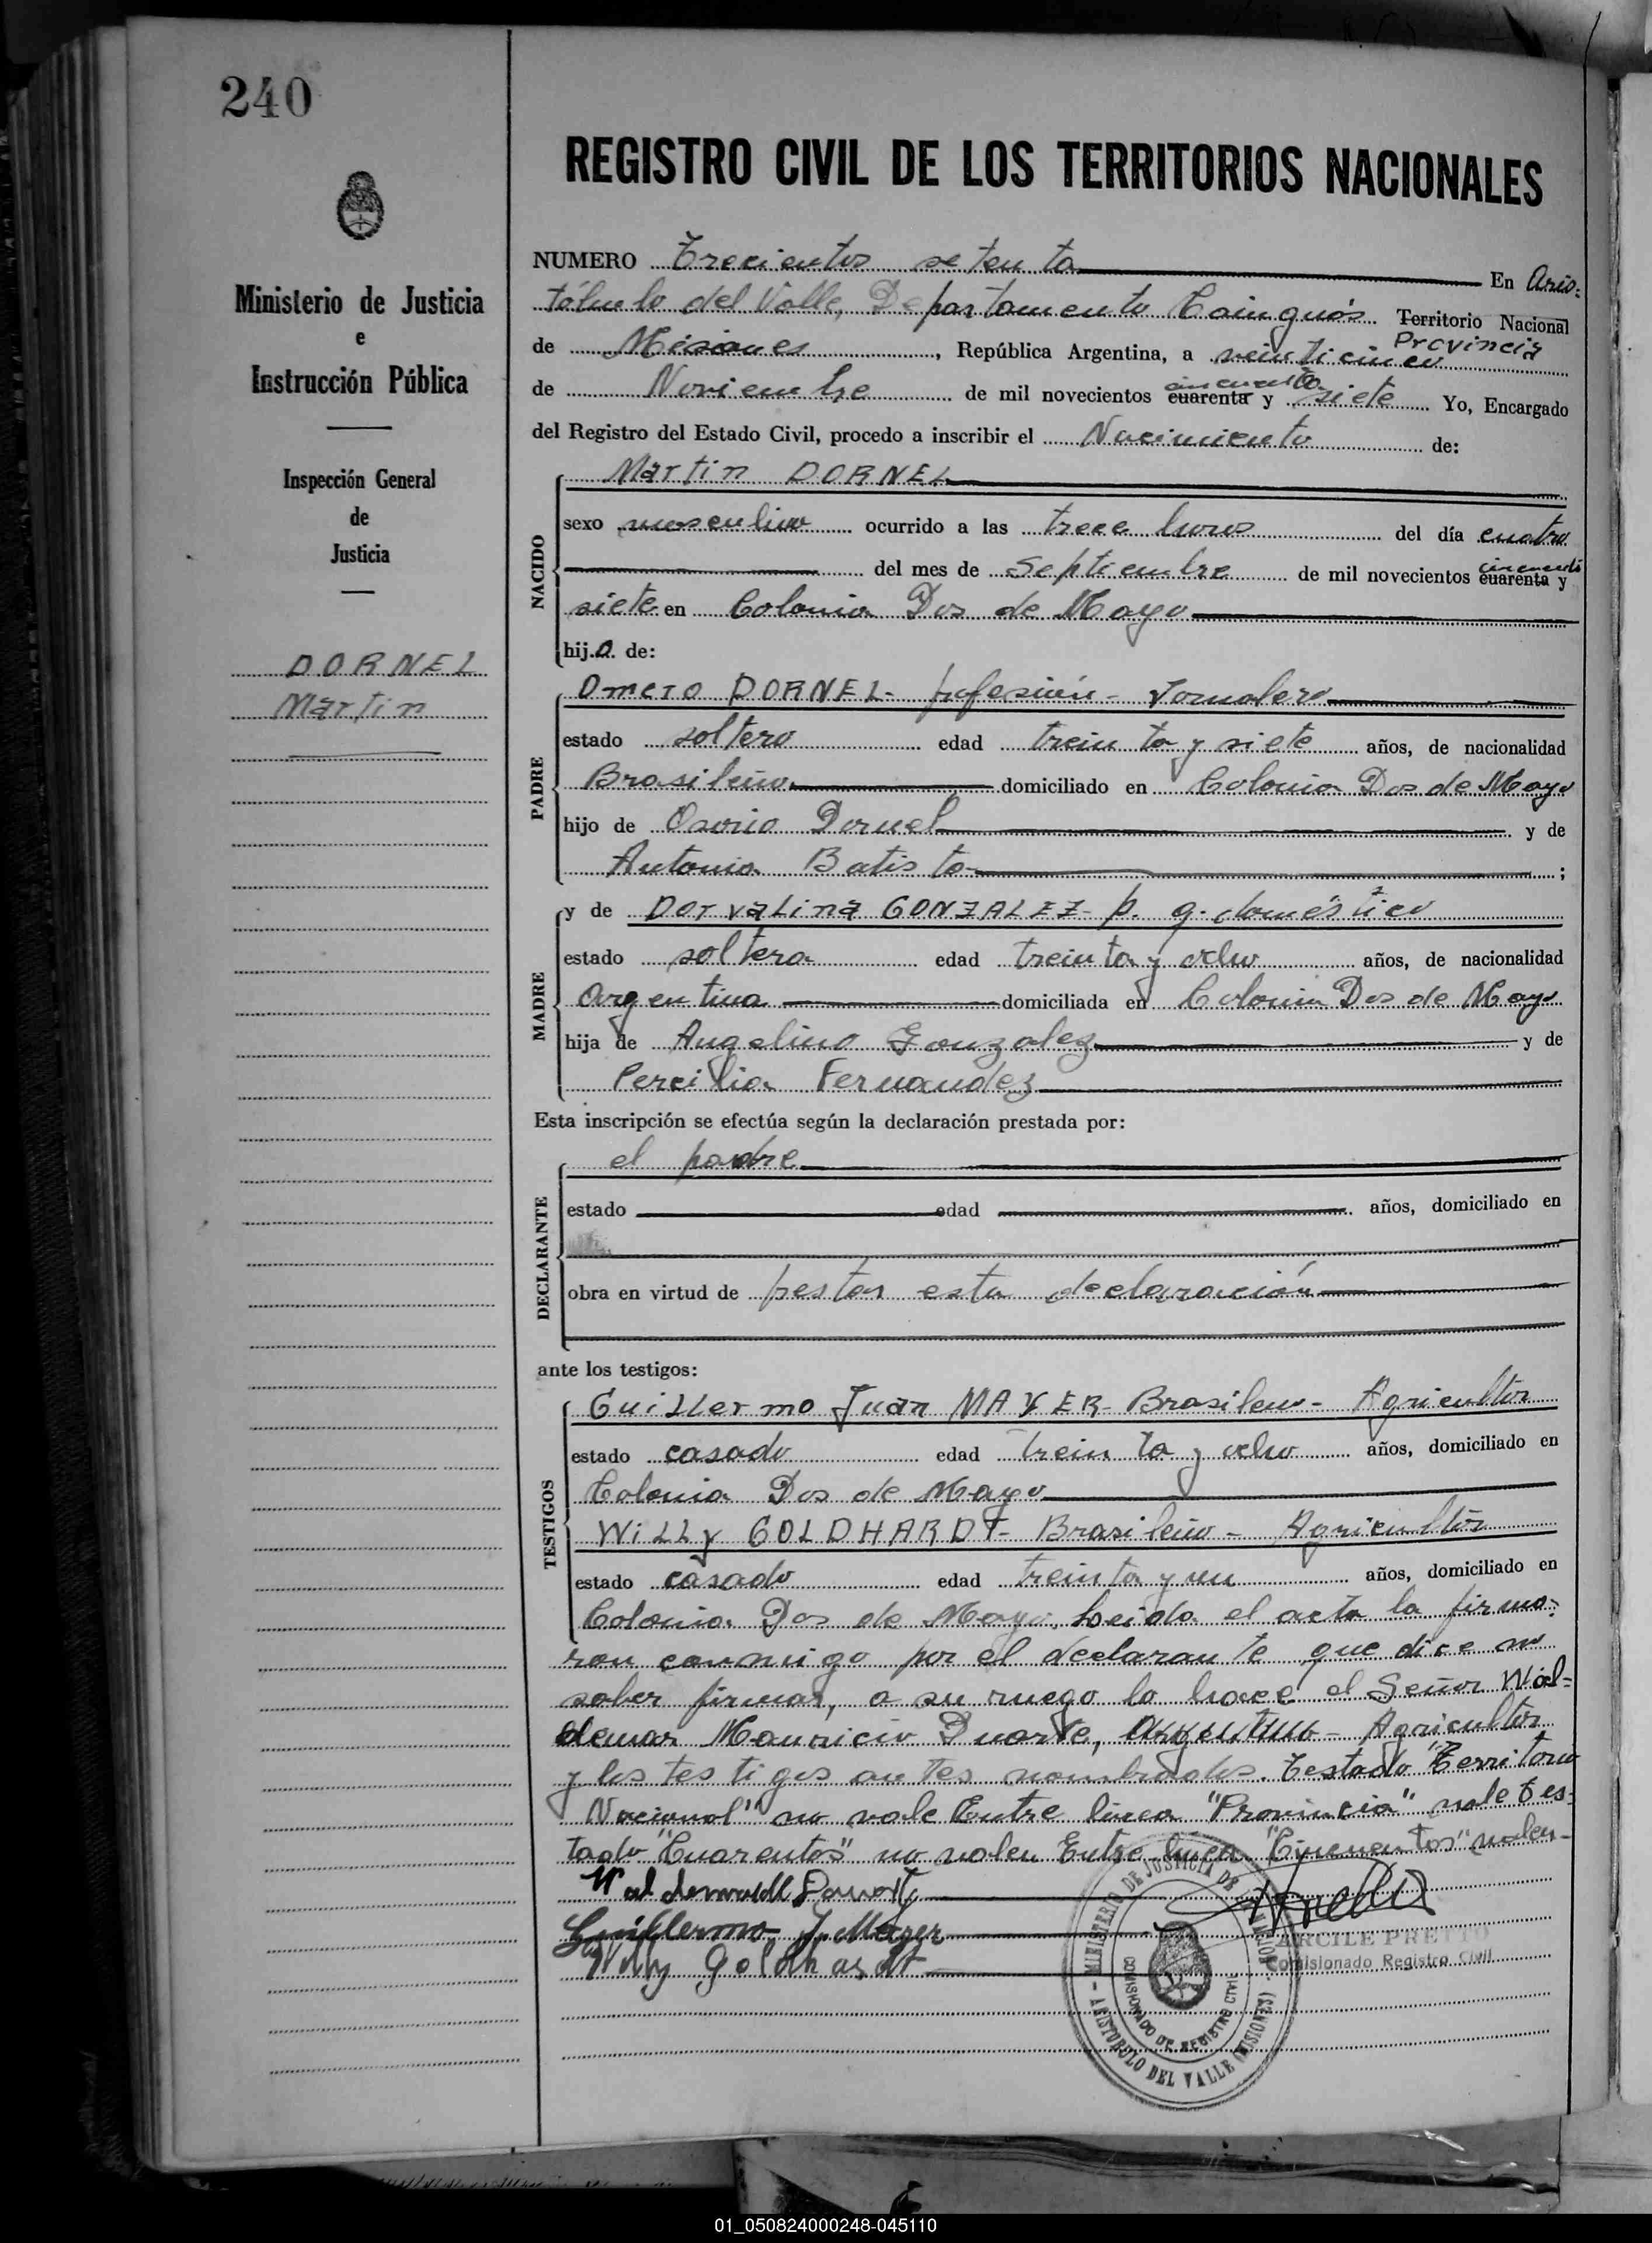 240
Ministerio de Justicia
e
Instrucción Pública
Inspección General
de
Justicia
DORNEL
Martin
REGISTRO CIVIL DE LOS TERRITORIOS NACIONALES
NUMERO Trecientos setenta En Aris-
tóbulo del Valle, Departamento Cainguás Territorio Nacional
Provincia
de Misiones, República Argentina, a veinticinco
de Noviembre de mil novecientos cuarenta y siete Yo, Encargado
cincuenta
del Registro del Estado Civil, procedo a inscribir el Nacimiento de:
NACIDO
Martin DORNEL
sexo masculino ocurrido a las trece horas del día cuatro
del mes de Septiembre de mil novecientos cuarenta y
cincuenta
siete en Colonia Dos de Mayo
hijo de:
PADRE
Omero DORNEL- profesión- Jornalero
estado soltero edad treinta y siete años, de nacionalidad
Brasileño domiciliado en Colonia Dos de Mayo
hijo de Osorio Dornel y de
Antonia Batista ;
MADRE
y de Dorvalina GONZALEZ- p. q. doméstico
estado soltera edad treinta y ocho años, de nacionalidad
Argentina domiciliada en Colonia Dos de Mayo
hija de Angelino Gonzalez y de
Percilia Fernandez
Esta inscripción se efectúa según la declaración prestada por:
DECLARANTE
el padre
estado edad años, domiciliado en
obra en virtud de prestar esta declaración
ante los testigos:
TESTIGOS
Guillermo Juan MAYER- Brasileño- Agricultor
estado casado edad treinta y ocho años, domiciliado en
Colonia Dos de Mayo
Willy GOLDHARDT- Brasileño- Agricultor
estado casado edad treinta y un años, domiciliado en
Colonia Dos de Mayo. Leida el acta la firma-
ron conmigo por el declarante que dice no
saber firmar, a su ruego lo hace el Señor Wal-
demar Mauricio Duarte, Argentino- Agricultor
y los testigos antes nombrados. Testado "Territorio
Nacional" no vale Entre linea "Provincia" vale Tes-
tado "Cuarentas" no valen Entre linea "Cincuentas" valen-
Guillermo J. Mayer
Willy Goldhardt
ARCILE PRETTO
Comisionado Registro Civil
MINISTERIO DE JUSTICIA DE LA NACION
COMISIONADO DE REGISTRO CIVIL
ARISTOBULO DEL VALLE (MISIONES)
01_050824000248-045110